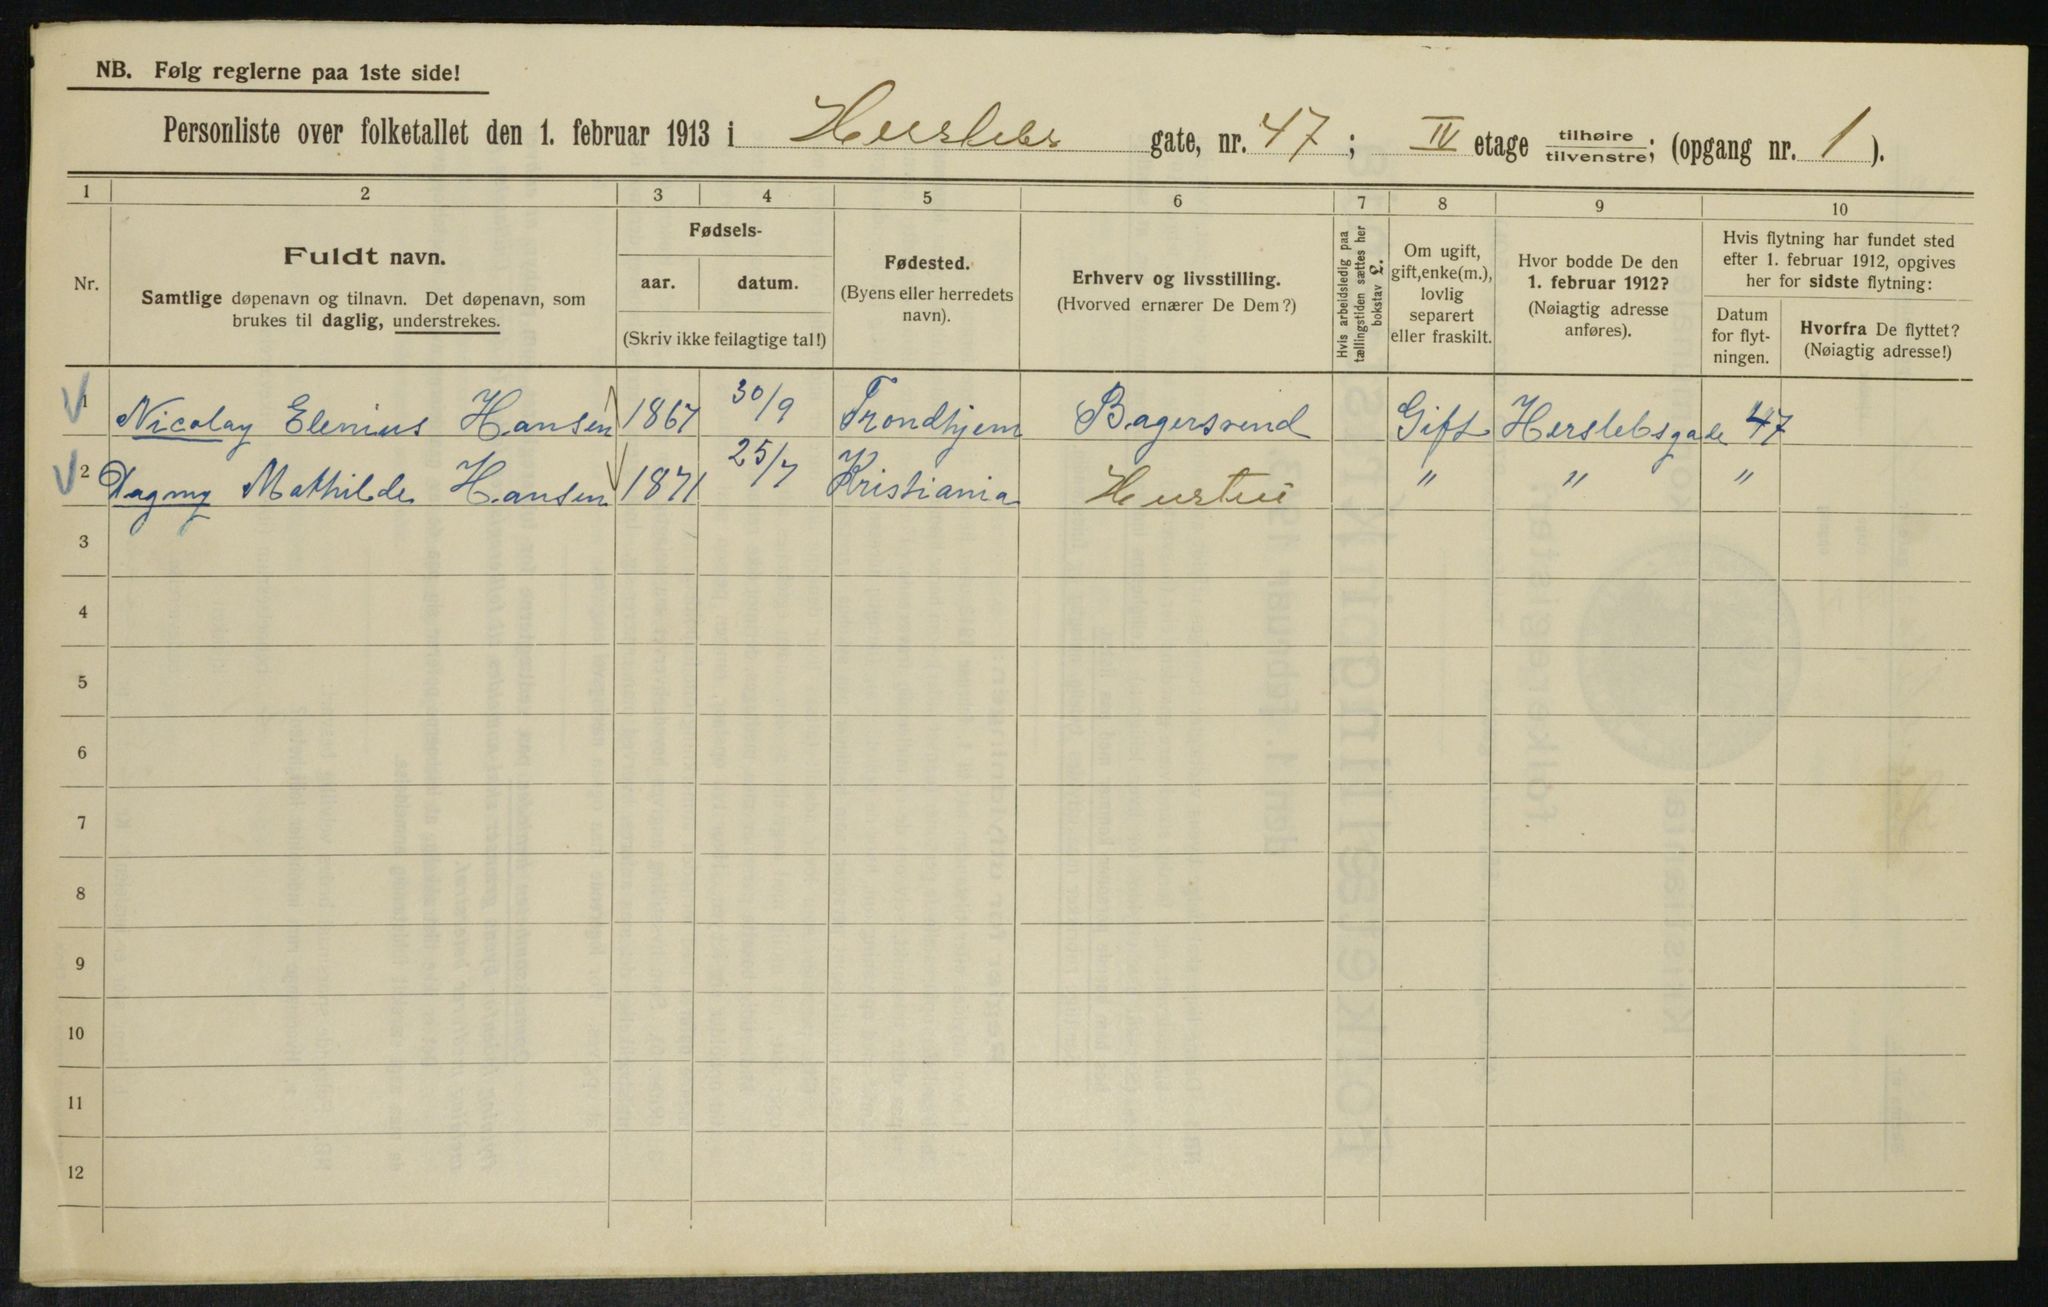 NB. Følg reglerne paa 1ste side!
Personliste over folketallet den 1. februar 1913 i Herslebs gate, nr. 47; IV etage tilhøire tilvenstre; (opgang nr. 1).
1 2 3 4 5 6 7 8 9 10
Nr.
Fuldt navn.
Samtlige døpenavn og tilnavn. Det døpenavn, som
brukes til daglig, understrekes.
Fødsels-
aar. datum.
(Skriv ikke feilagtige tal!)
Fødested.
(Byens eller herredets
navn).
Erhverv og livsstilling.
(Hvorved ernærer De Dem?)
Hvis arbeidsledig paa
tællingstiden sættes her
bokstav L.
Om ugift,
gift, enke(m.),
lovlig
separert
eller fraskilt.
Hvor bodde De den
1. februar 1912?
(Nøiagtig adresse
anføres).
Hvis flytning har fundet sted
efter 1. februar 1912, opgives
her for sidste flytning:
Datum
for flyt-
ningen.
Hvorfra De flyttet?
(Nøiagtig adresse!)
1 Nicolay Elenius Hansen 1867 30/9 Trondhjem Bagersvend Gift Herslebsgade 47
2 Dagny Mathilde Hansen 1871 25/7 Kristiania Hustru " " "
3
4
5
6
7
8
9
10
11
12